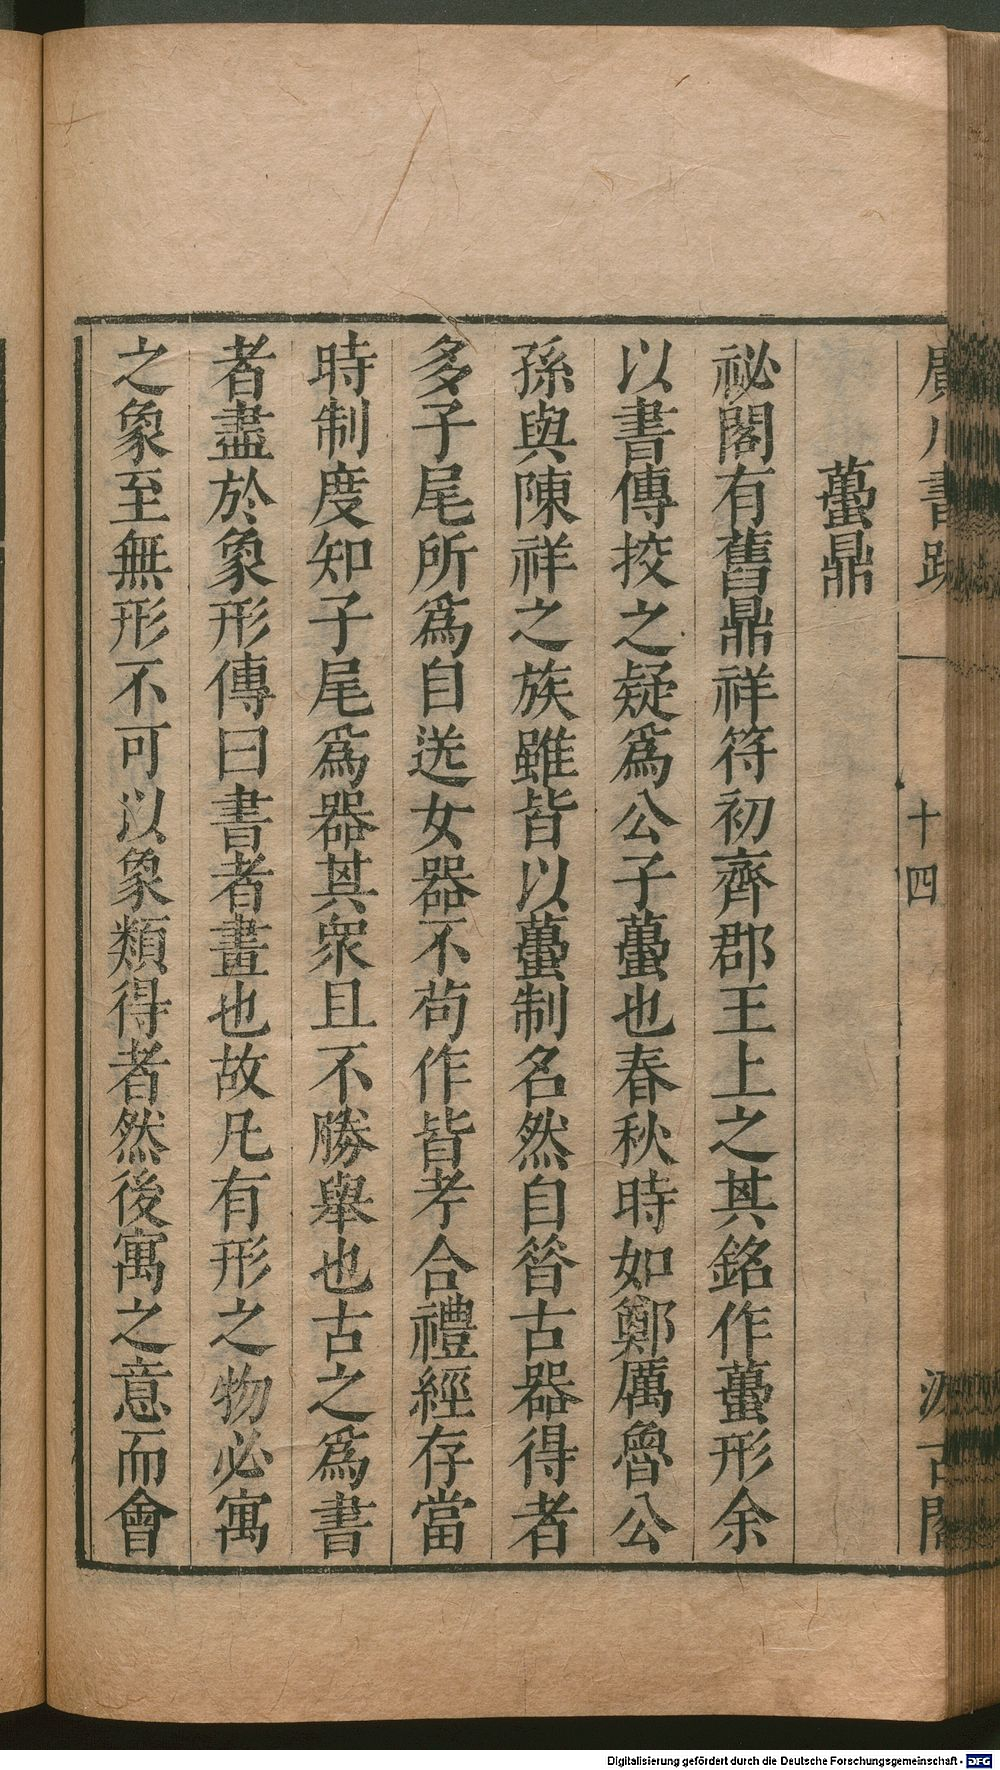 廣川書跋
十四
汲古閣
蠆鼎
祕閣有舊鼎祥符初齊郡王上之其銘作蠆形余
以書傳挍之疑爲公子蠆也春秋時如鄭厲魯公
孫與陳祥之族雖皆以蠆制名然自昝古器得者
多子尾所爲自送女器不茍作皆考合禮經存當
時制度知子尾爲器其衆且不勝舉也古之爲書
者盡於象形傳曰書者畫也故凡有形之物必寓
之象至無形不可以象類得者然後寓之意而會
Digitalisierung gefördert durch die Deutsche Forschungsgemeinschaft - DFG